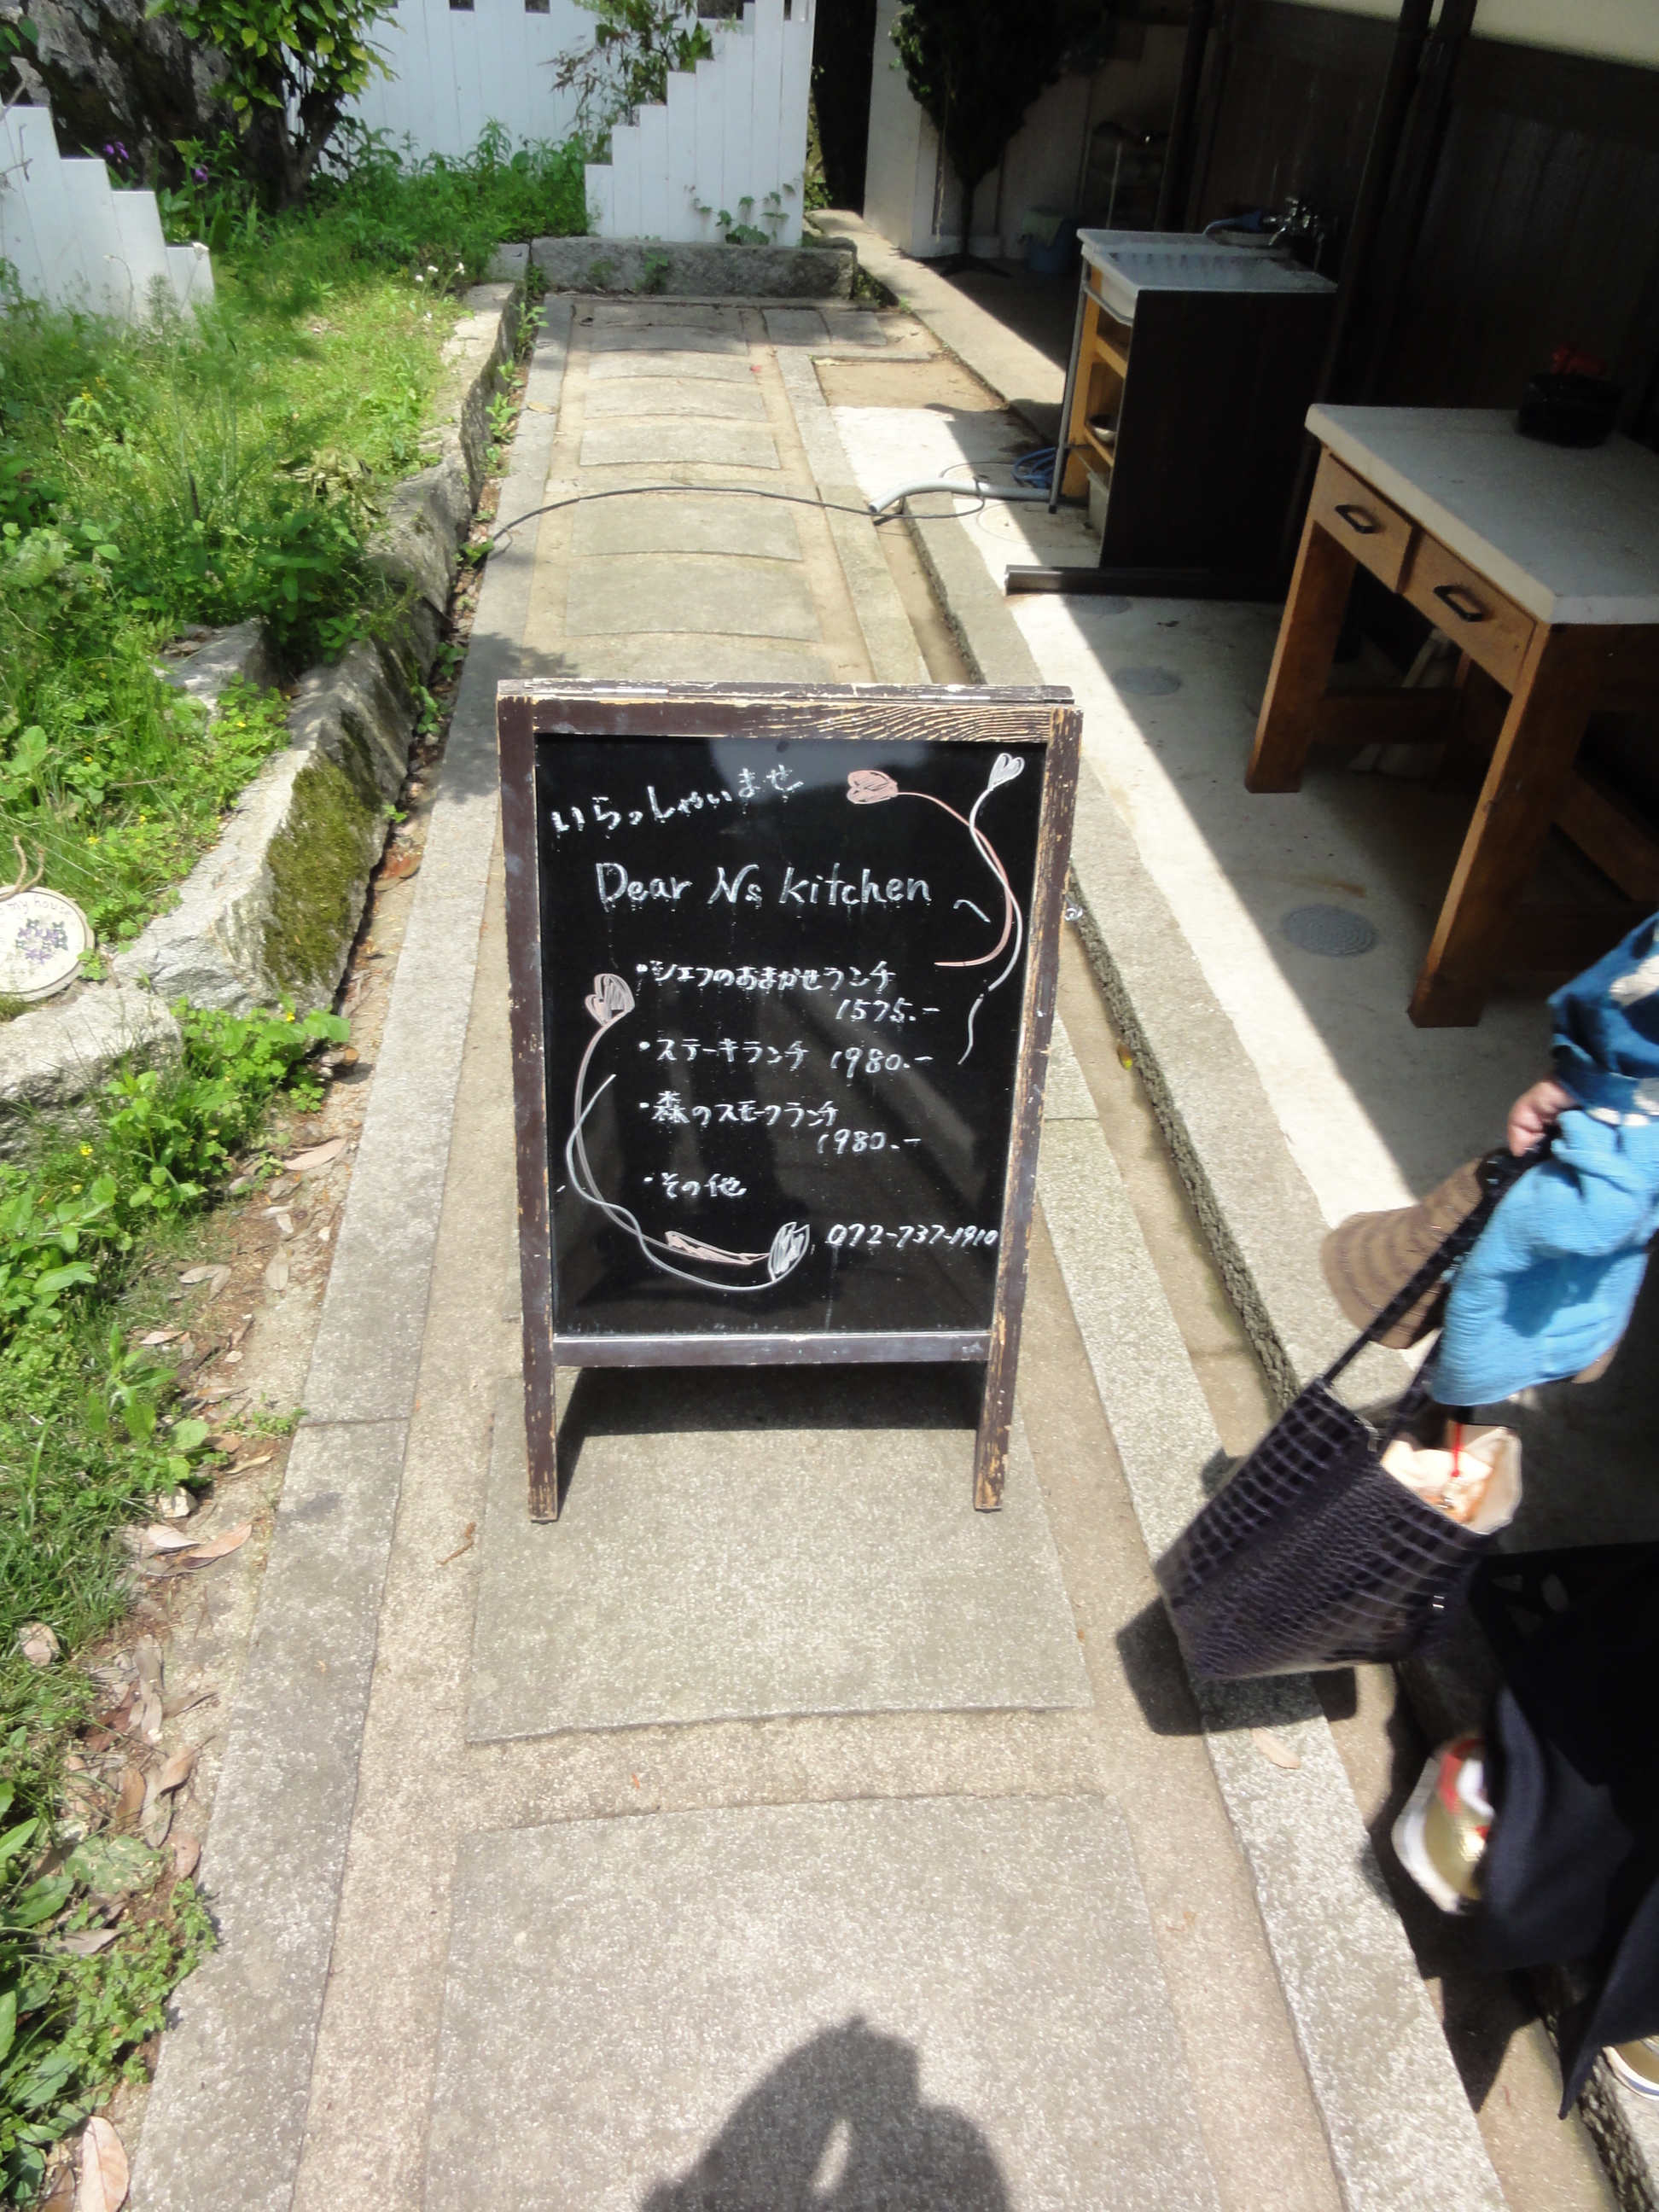 いらっしゃいませ
Dear Ns kitchen
・シェフのおまかせランチ
1575.-
・ステーキランチ 1980.-
・森のスモークランチ
1980.-
・その他
072-737-1910
my house